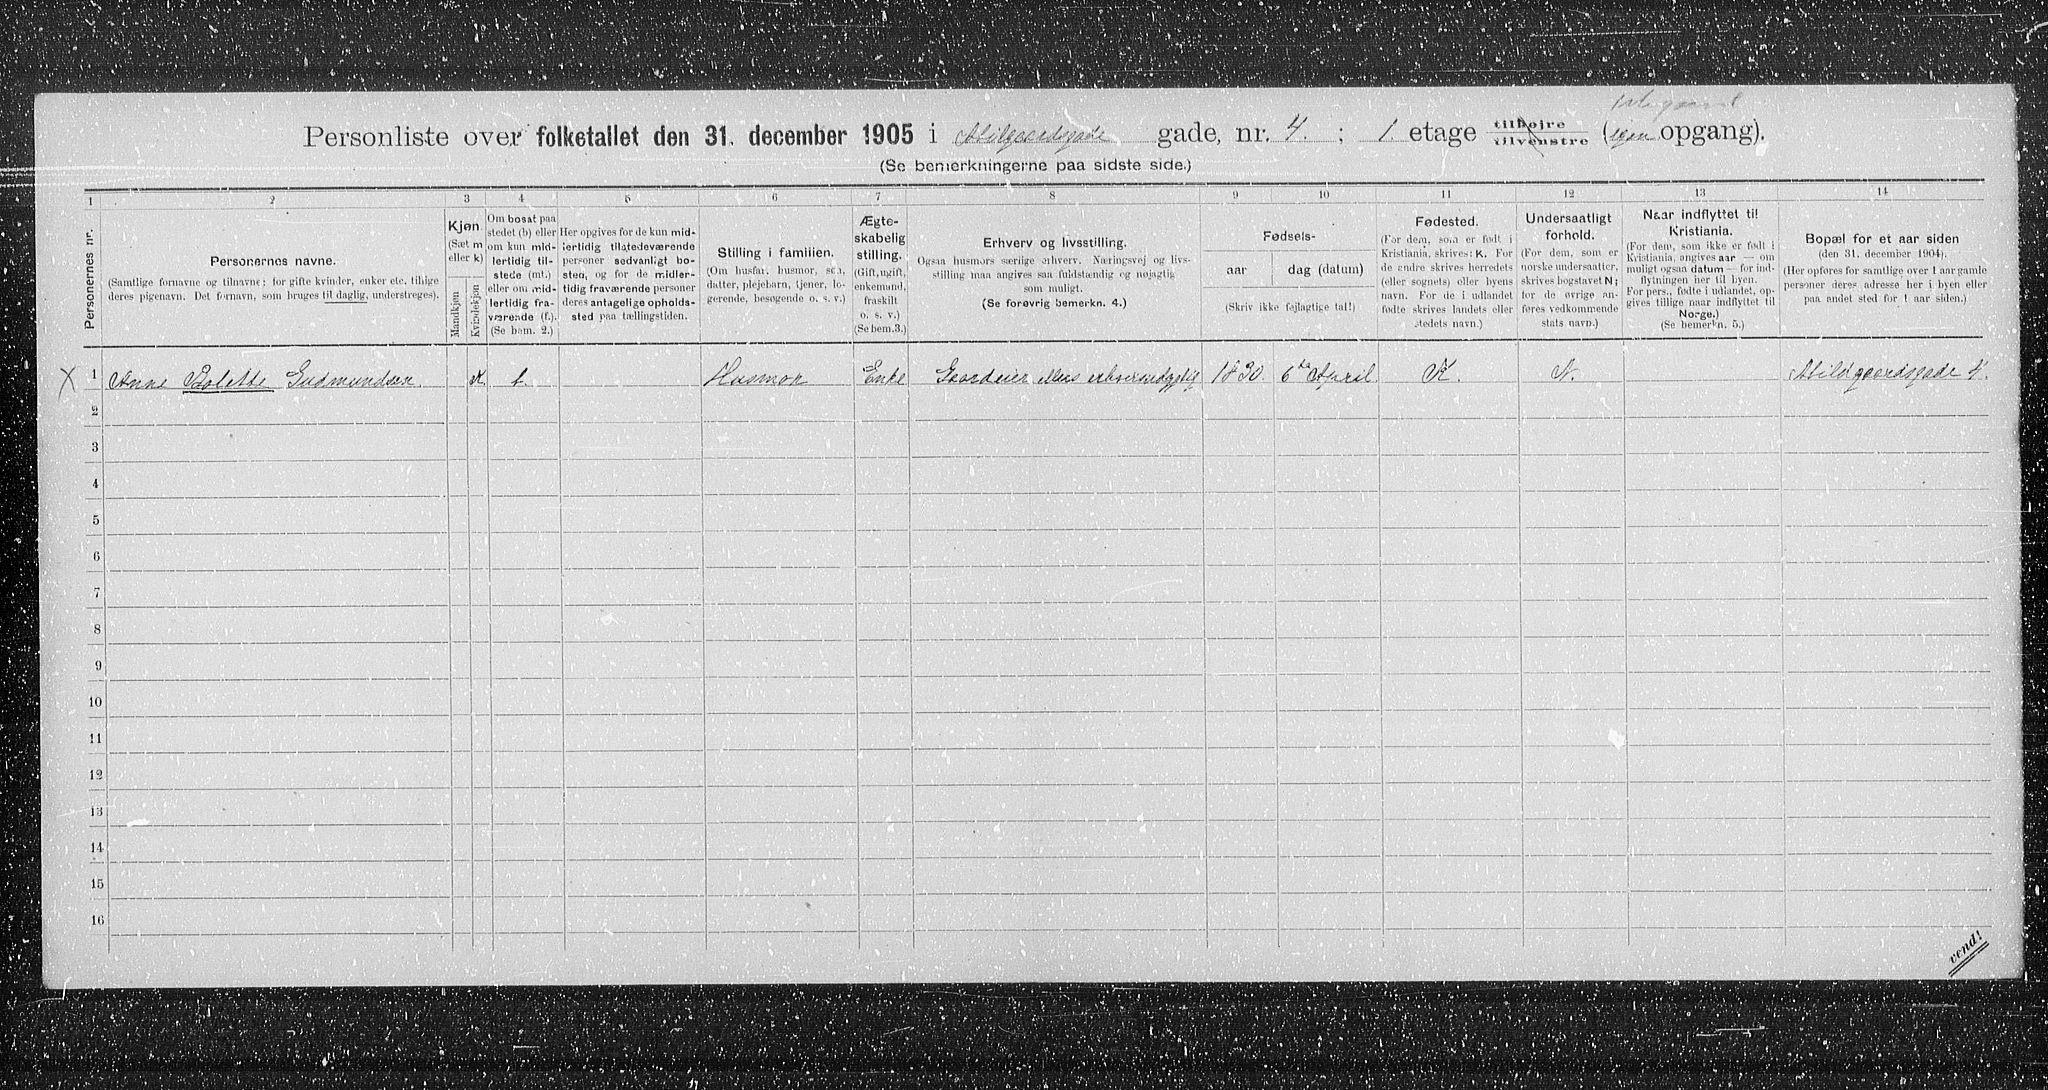 Personliste over folketallet den 31. december 1905 i Abildgaardsgade gade, nr. 4. ; 1. etage tilhøjre tilvenstre (egen opgang).
(Se bemerkningerne paa sidste side.)
1 2 3 4 5 6 7 8 9 10 11 12 13 14
Personernes nr.
Personernes navne.
(Samtlige fornavne og tilnavne; for gifte kvinder, enker etc. tillige
deres pigenavn. Det fornavn, som bruges til daglig, understreges).
Kjøn
(Sæt m
eller k)
Mandkjøn
Kvindekjøn
Om bosat paa
stedet (b) eller
om kun mid-
lertidig til-
stede (mt.)
eller om mid-
lertidig fra-
værende (f.).
(Se bem. 2.)
Her opgives for de kun mid-
lertidig tilstedeværende
personer sedvanligt bo-
sted, og for de midler-
tidig fraværende personer
deres antagelige opholds-
sted paa tællingstiden.
Stilling i familien.
(Om husfar, husmor, søn,
datter, plejebarn, tjener, lo-
gerende, besøgende o. s. v.)
Ægte-
skabelig
stilling.
(Gift, ugift,
enkemand,
fraskilt
o. s. v.)
(Se bem. 3.)
Erhverv og livsstilling.
Ogsaa husmors særlige erhverv. Næringsvej og livs-
stilling maa angives saa fuldstændig og nøjagtig
som muligt.
(Se forøvrig bemerkn. 4.)
Fødsels-
aar
dag (datum)
(Skriv ikke fejlagtige tal!)
Fødested.
(For dem, som er født i
Kristiania, skrives: K. For
de andre skrives herredets
(eller sognets) eller byens
navn. For de i udlandet
fødte skrives landets eller
stedets navn.)
Undersaatligt
forhold.
(For dem, som er
norske undersaatter,
skrives bogstavet N;
for de øvrige an-
føres vedkommende
stats navn.)
Naar indflyttet til
Kristiania.
(For dem, som ikke er født i
Kristiania, angives aar — om
muligt ogsaa datum — for ind-
flytningen her til byen.
For pers., fødte i udlandet, op-
gives tillige naar indflyttet til
Norge.)
(Se bemerkn. 5.)
Bopæl for et aar siden
(den 31. december 1904).
(Her opføres for samtlige over 1 aar gamle
personer deres adresse her i byen eller
paa andet sted for 1 aar siden.)
X 1 Anne Bolette Gudmundsen k b. Husmor Enke Gaardeier 1830. 6te April K. N. Abildgaardsgade 4.
2
3
4
5
6
7
8
9
10
11
12
13
14
15
16
vend!